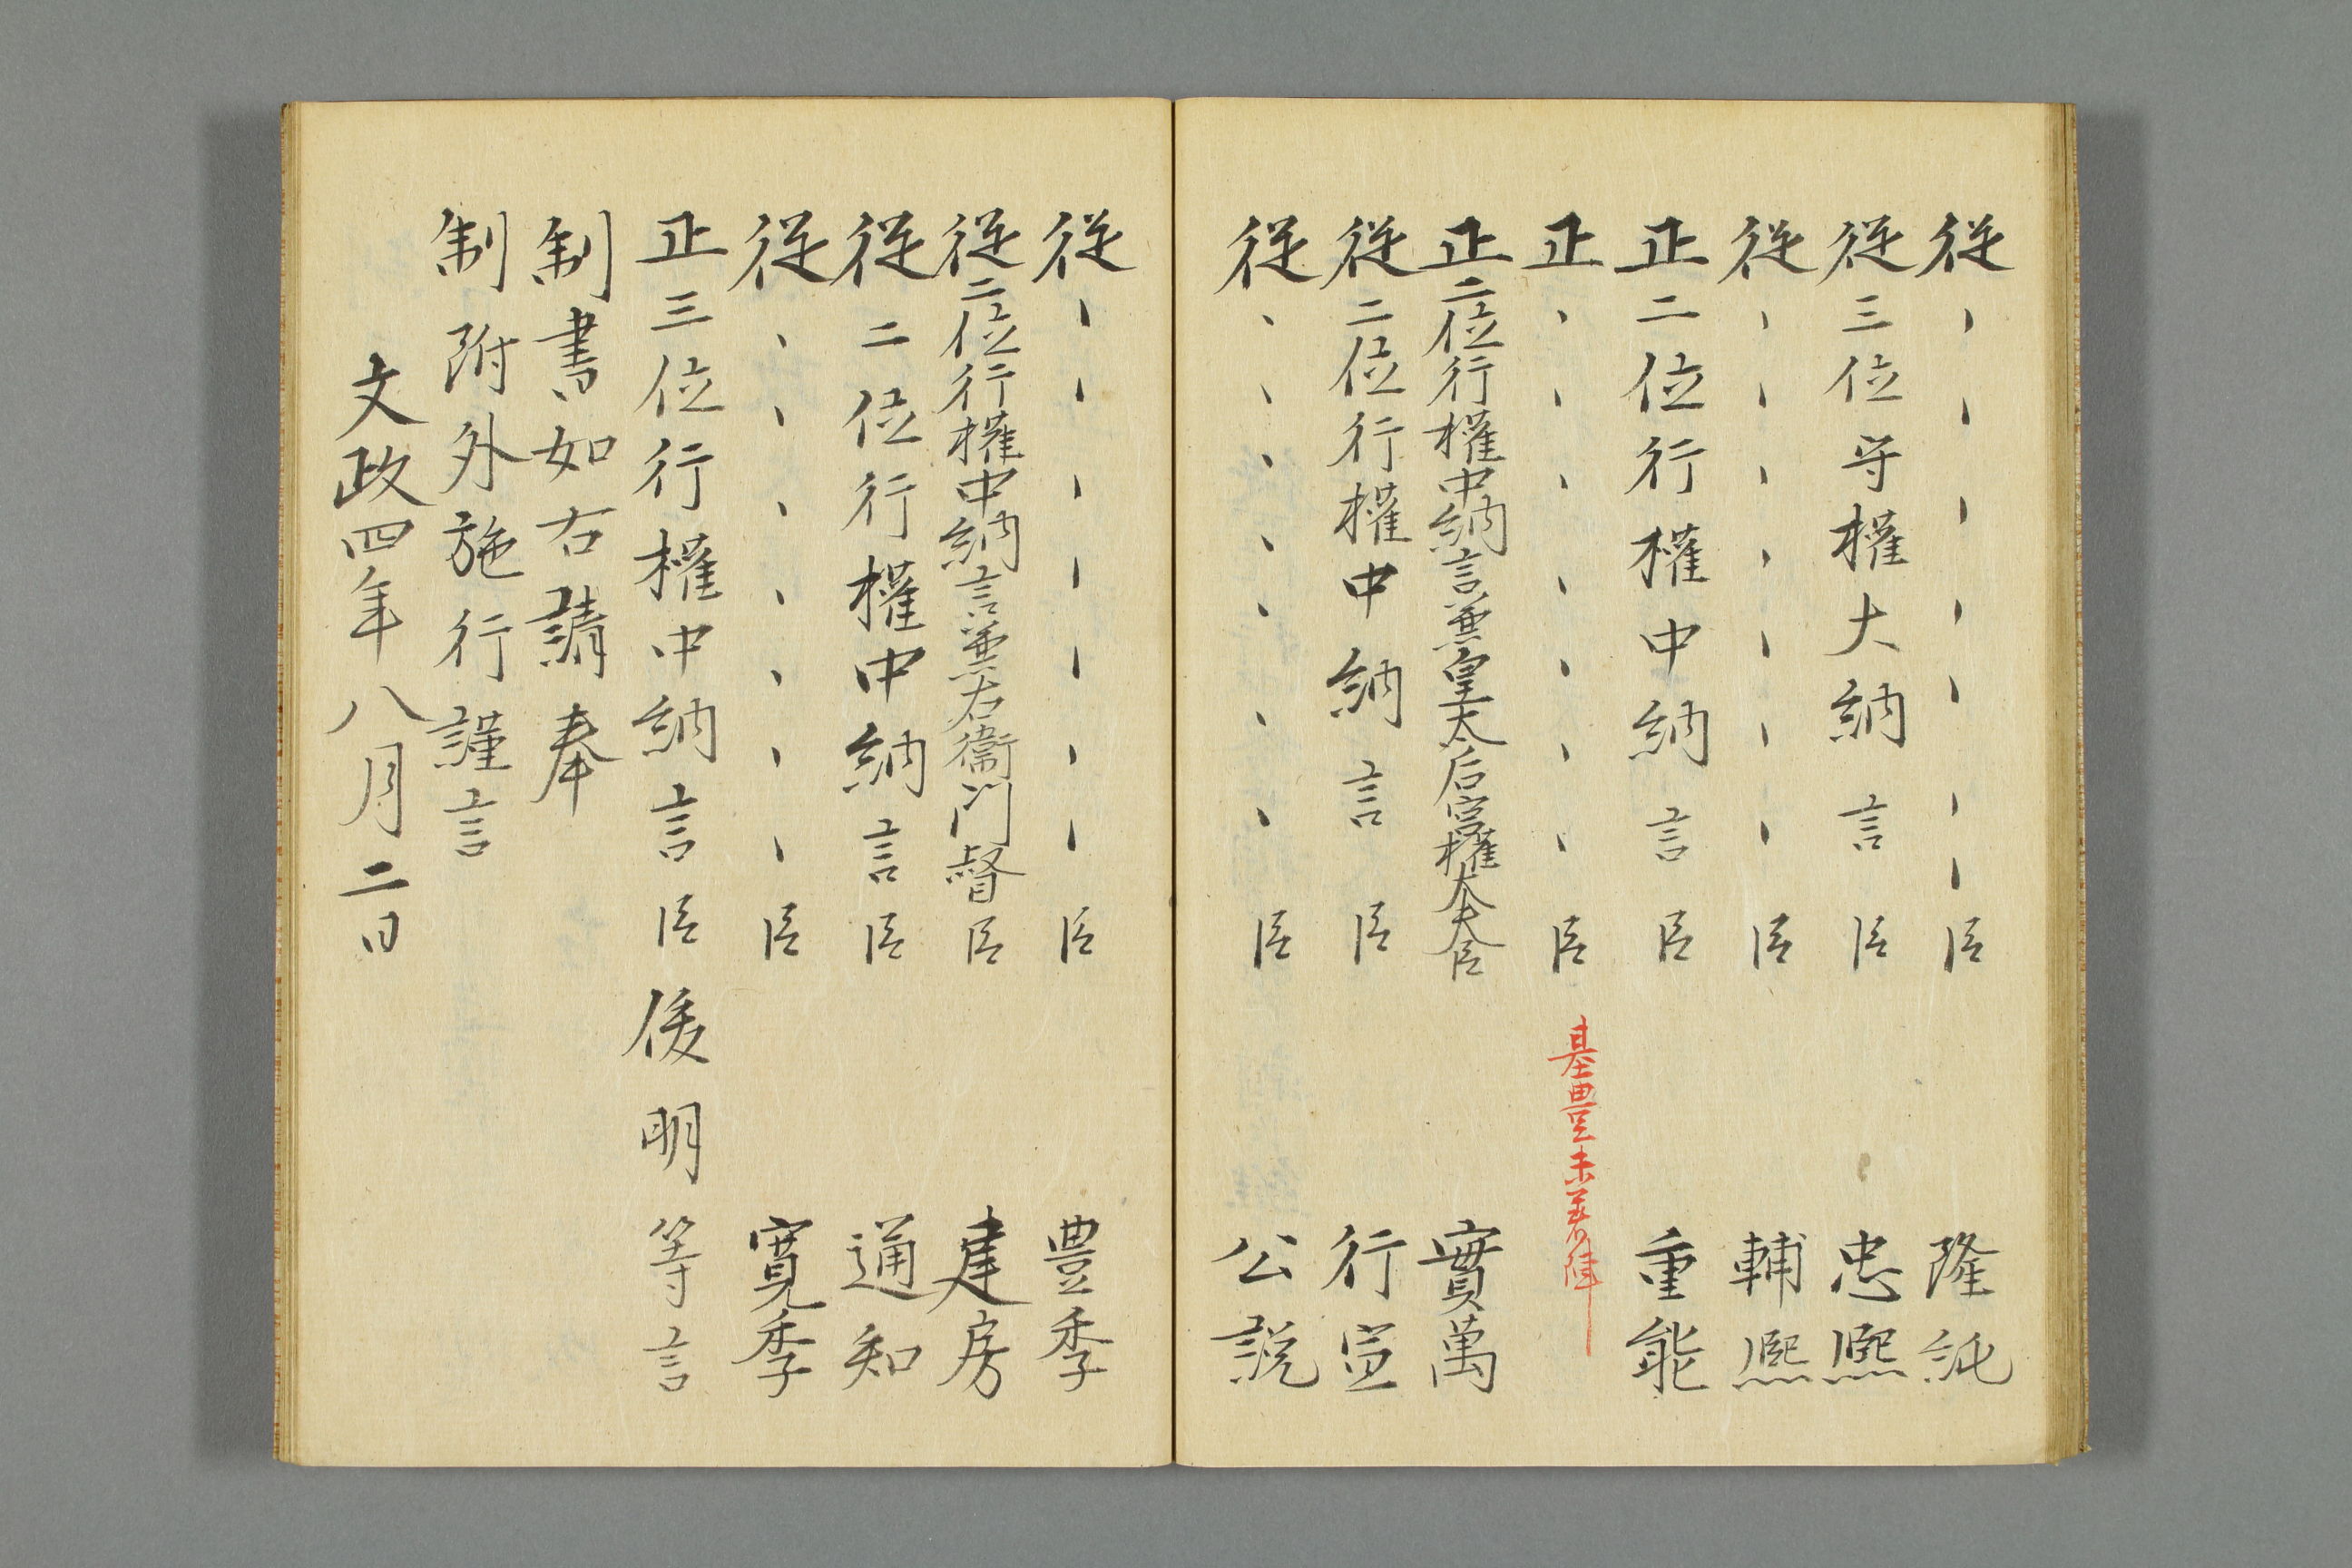 從、、、、、、、臣 隆純
從三位守權大納言臣 忠熈
從、、、、、、、臣 輔熈
正二位行權中納言臣 重能
正、、、、、、、臣 基豊未着陣
正二位行權中納言兼皇太后宮權大夫臣 實萬
從二位行權中納言臣 行宣
從、、、、、、、臣 公説
從、、、、、、、臣 豊季
從二位行權中納言兼右衞門督臣 建房
從二位行權中納言臣 通知
從、、、、、、、臣 寛季
正三位行權中納言臣俊明等言
制書如右請奉
制附外施行謹言
文政四年八月二日